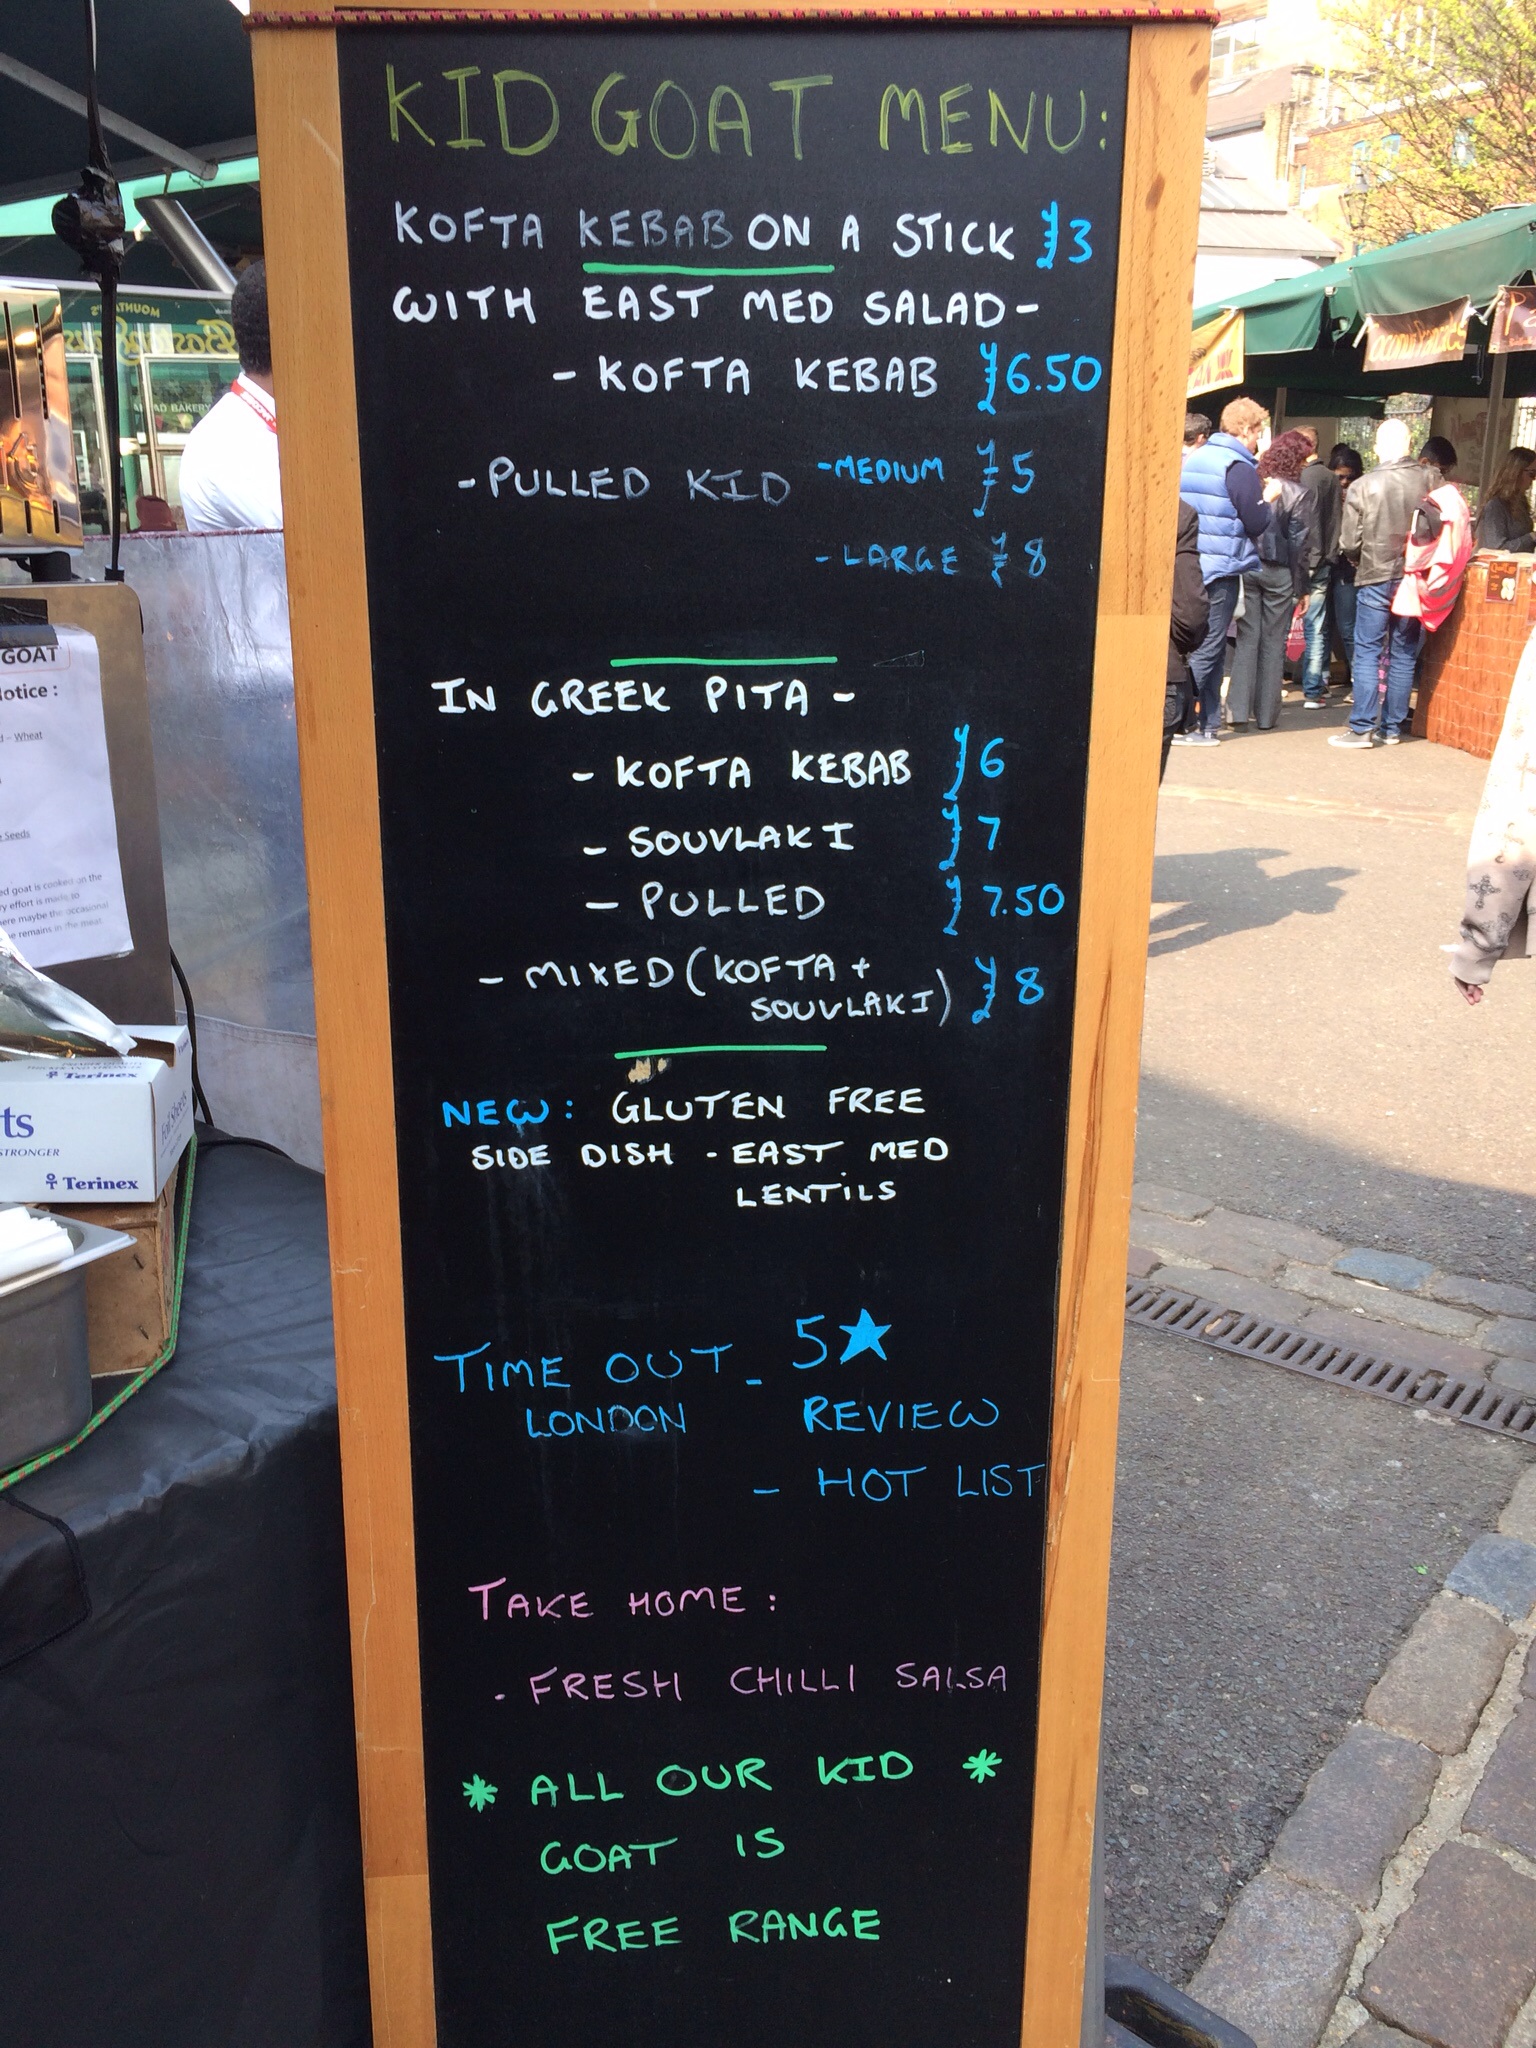 KID GOAT MENU:
KOFTA KEBAB ON A STICK £3
WITH EAST MED SALAD-
- KOFTA KEBAB £6.50
- PULLED KID - MEDIUM £5
- LARGE £8
IN GREEK PITA -
- KOFTA KEBAB £6
- SOUVLAKI £7
- PULLED £7.50
- MIXED (KOFTA +
SOUVLAKI) £8
NEW: GLUTEN FREE
SIDE DISH - EAST MED
LENTILS
TIME OUT - 5★
LONDON REVIEW
- HOT LIST
TAKE HOME:
- FRESH CHILLI SALSA
* ALL OUR KID *
GOAT IS
FREE RANGE
GOAT
otice :
d – Wheat
e Seeds
ed goat is cooked on the
ry effort is made so
ere maybe the occasional
ne remains in the meat
Terinex
ts
STRONGER
Foil Sheets
Terinex
MOUNTA
AD BAKERY